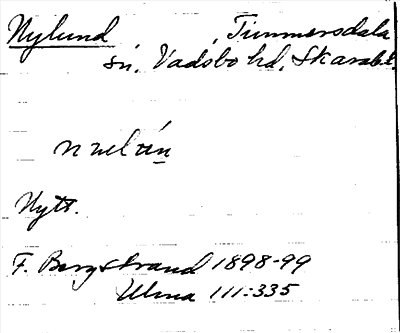 Nylund, Timmersdala
sn, Vadsbo hd, Skarab.l.
Nytt.
F. Bergstrand 1898-99
Ulma 111:335